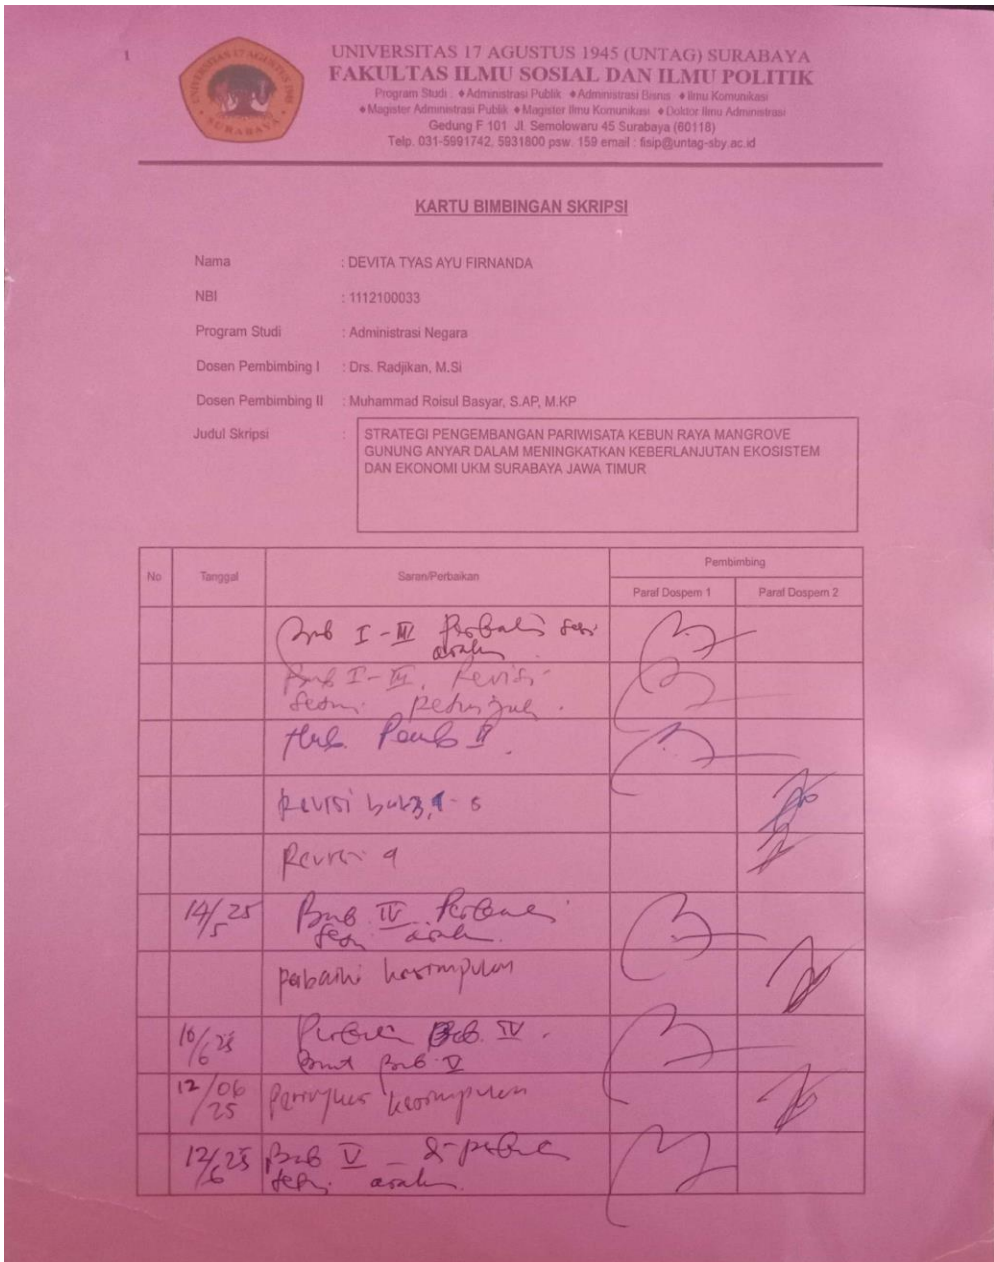 1
UNIVERSITAS 17 AGUSTUS 1945
SURABAYA
UNIVERSITAS 17 AGUSTUS 1945 (UNTAG) SURABAYA
FAKULTAS ILMU SOSIAL DAN ILMU POLITIK
Program Studi : ♦Administrasi Publik ♦Administrasi Bisnis ♦Ilmu Komunikasi
♦Magister Administrasi Publik ♦Magister Ilmu Komunikasi ♦Doktor Ilmu Administrasi
Gedung F 101 Jl. Semolowaru 45 Surabaya (60118)
Telp. 031-5991742, 5931800 psw. 159 email : fisip@untag-sby.ac.id
KARTU BIMBINGAN SKRIPSI
Nama : DEVITA TYAS AYU FIRNANDA
NBI : 1112100033
Program Studi : Administrasi Negara
Dosen Pembimbing I : Drs. Radjikan, M.Si
Dosen Pembimbing II : Muhammad Roisul Basyar, S.AP, M.KP
Judul Skripsi : STRATEGI PENGEMBANGAN PARIWISATA KEBUN RAYA MANGROVE
GUNUNG ANYAR DALAM MENINGKATKAN KEBERLANJUTAN EKOSISTEM
DAN EKONOMI UKM SURABAYA JAWA TIMUR
No Tanggal Saran/Perbaikan Pembimbing
Paraf Dospem 1 Paraf Dospem 2
Bab I - III
Bab I - III, Revisi
Hub. Pemb II.
Revisi bab
Revisi
14/5 25 Bab IV
kesimpulan
10/6 25 Bab IV.
Bab V
12/06 25 kesimpulan
12/6 25 Bab V